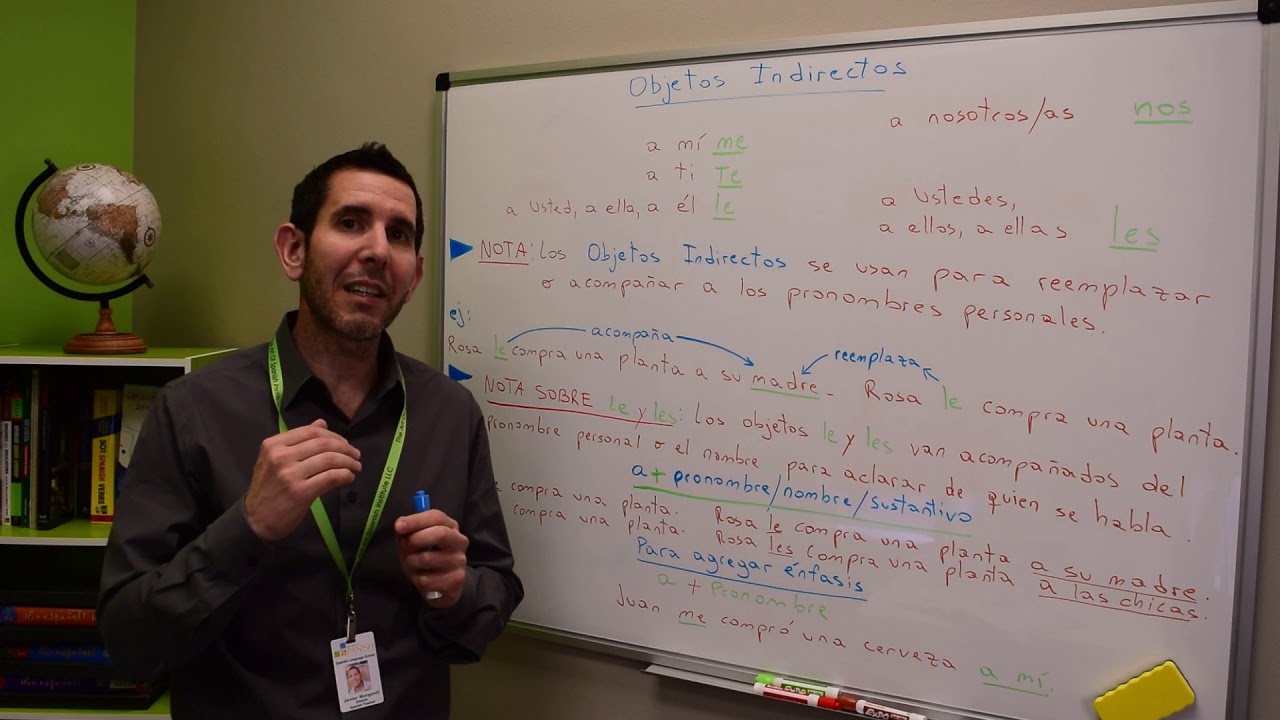 Objetos Indirectos
a mí me
a ti Te
a usted, a ella, a él le
a nosotros/as nos
a ustedes,
a ellos, a ellas les
NOTA: los Objetos Indirectos se usan para reemplazar
o acompañar a los pronombres personales.
ej:
acompaña
reemplaza
Rosa le compra una planta a su madre. Rosa le compra una planta.
NOTA SOBRE le y les: Los objetos le y les van acompañados del
pronombre personal o el nombre para aclarar de quien se habla.
a + pronombre/nombre/sustantivo
compra una planta. Rosa le compra una planta a su madre.
compra una planta. Rosa les compra una planta a las chicas.
Para agregar énfasis
a + pronombre
Juan me compró una cerveza a mí.
Spanish Institute LLC
SPANISH